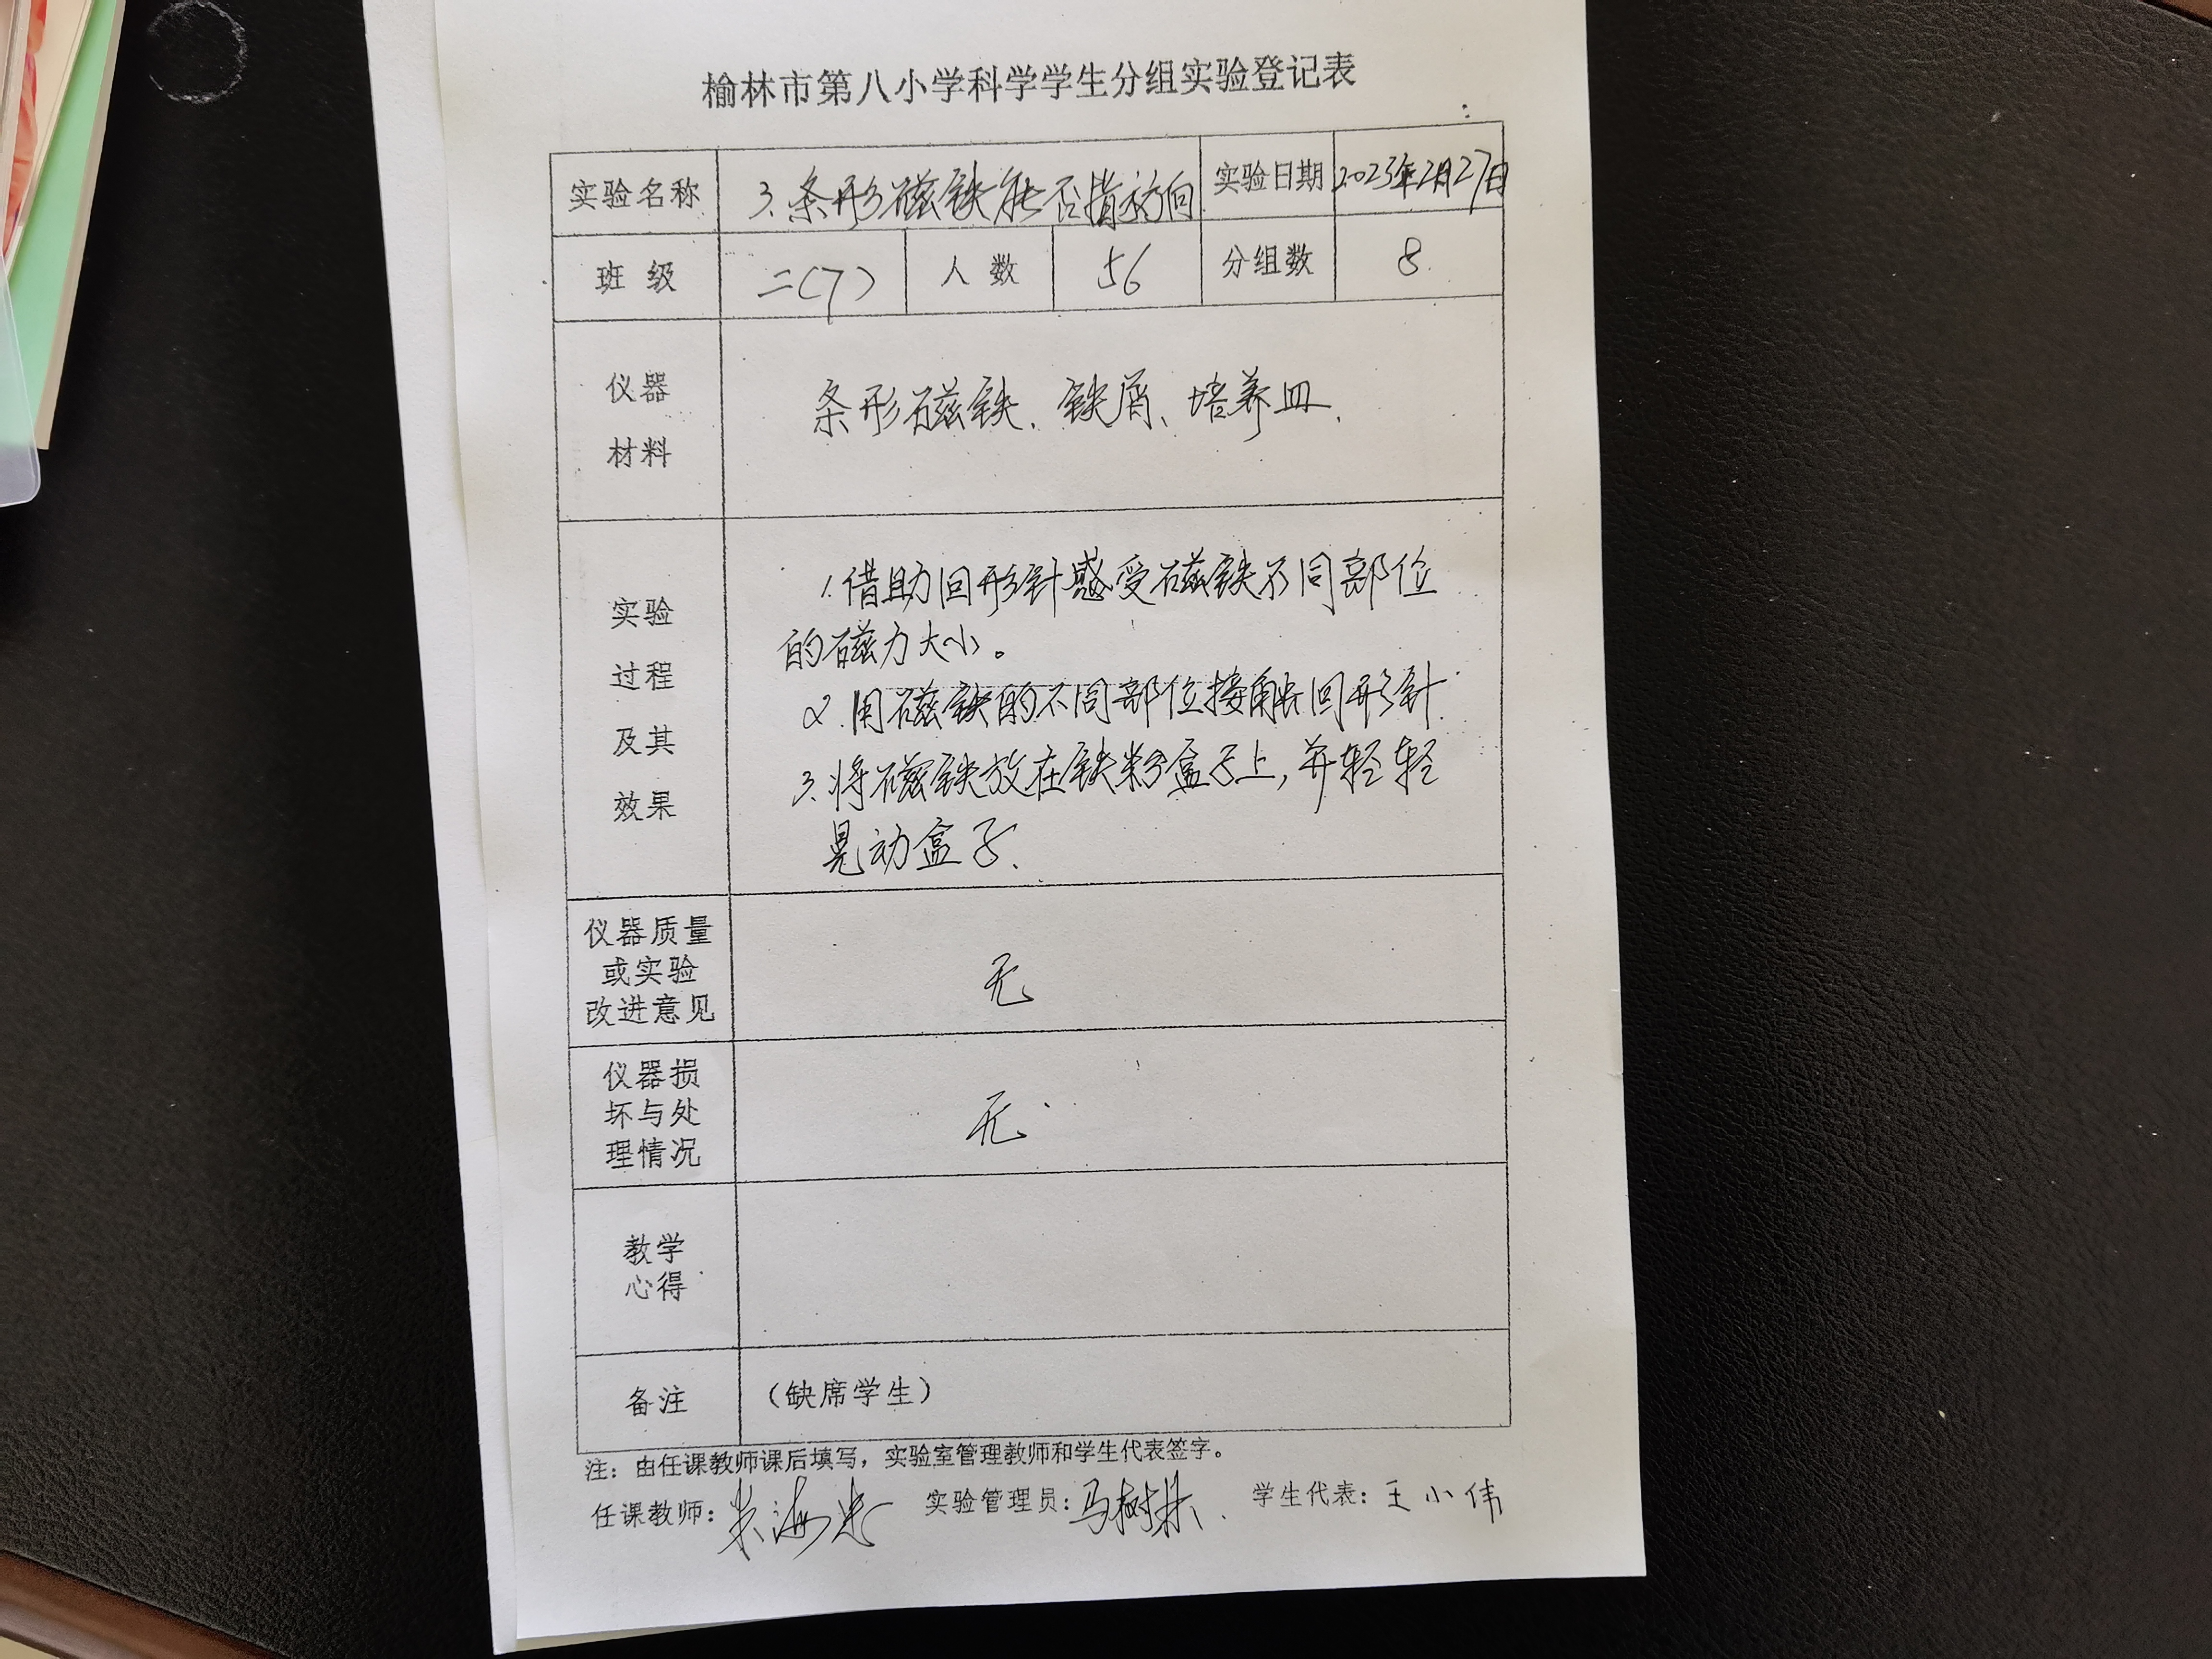 榆林市第八小学科学学生分组实验登记表
实验名称 3.条形磁铁能否指方向 实验日期 2023年2月27日
班 级 二(7) 人 数 56 分组数 8
仪器
材料
条形磁铁、铁屑、培养皿.
实验
过程
及其
效果
1.借助回形针感受磁铁不同部位
的磁力大小。
2.用磁铁的不同部位接触回形针.
3.将磁铁放在铁粉盒子上,并轻轻
晃动盒子.
仪器质量
或实验
改进意见
无
仪器损
坏与处
理情况
无
教学
心得
备注 (缺席学生)
注：由任课教师课后填写，实验室管理教师和学生代表签字。
任课教师: 实验管理员:马树 学生代表:王小伟